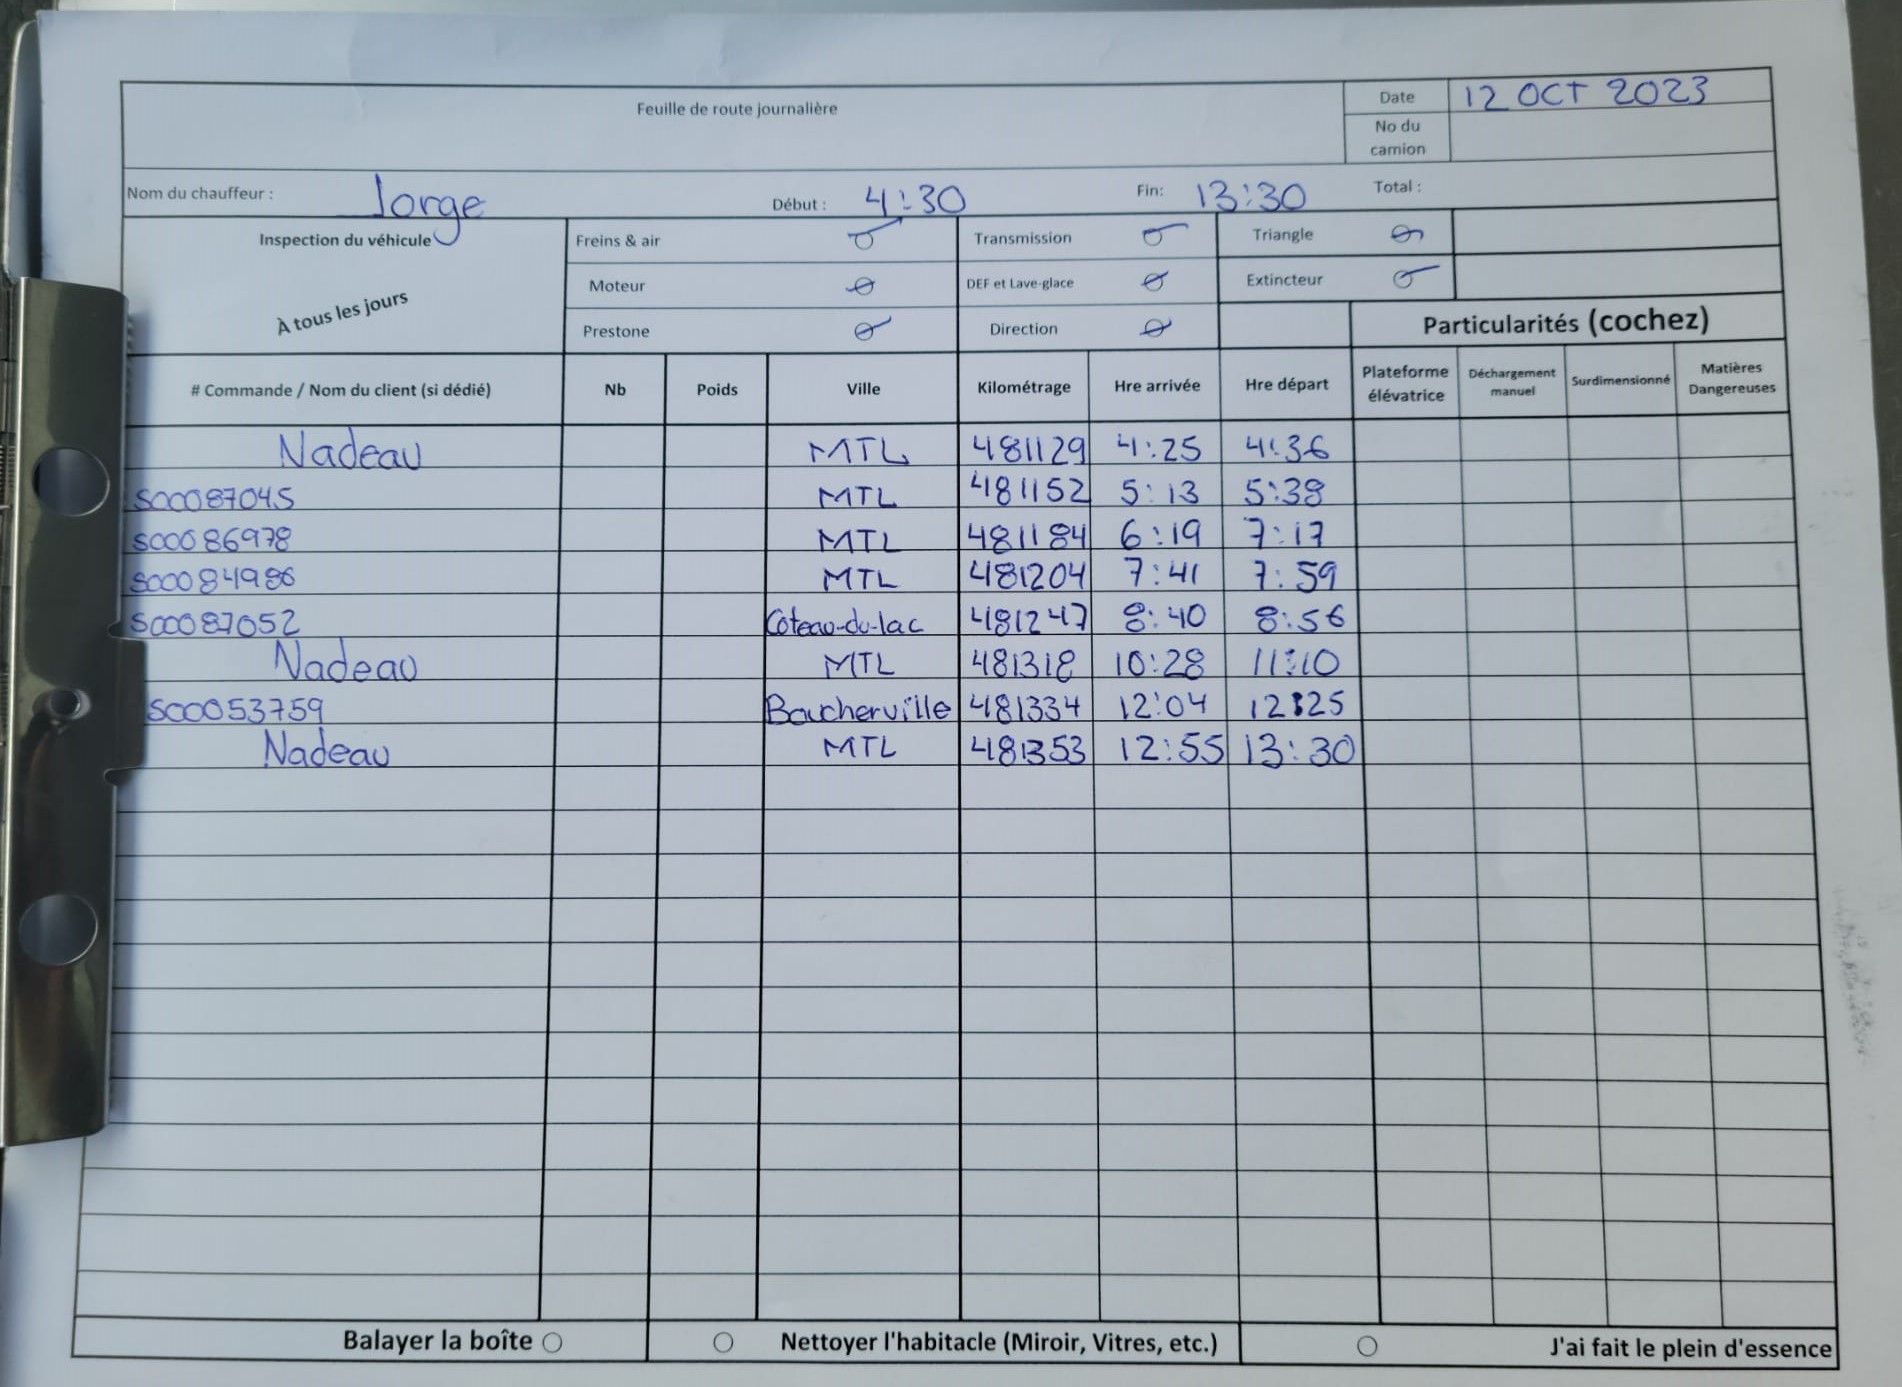 Feuille de route journalière
Date 12 OCT 2023
No du
camion
Nom du chauffeur : Jorge Début : 4:30 Fin: 13:30 Total :
Inspection du véhicule Freins & air Transmission Triangle
À tous les jours Moteur DEF et Lave-glace Extincteur
Prestone Direction Particularités (cochez)
# Commande / Nom du client (si dédié) Nb Poids Ville Kilométrage Hre arrivée Hre départ Plateforme élévatrice Déchargement manuel Surdimensionné Matières Dangereuses
Nadeau MTL 481129 4:25 4:36
S00087045 MTL 481152 5:13 5:38
S00086978 MTL 481184 6:19 7:17
S00084986 MTL 481204 7:41 7:59
S00087052 Côteau-du-lac 481247 8:40 8:56
Nadeau MTL 481318 10:28 11:10
S00053759 Boucherville 481334 12:04 12:25
Nadeau MTL 481353 12:55 13:30
Balayer la boîte Nettoyer l'habitacle (Miroir, Vitres, etc.) J'ai fait le plein d'essence